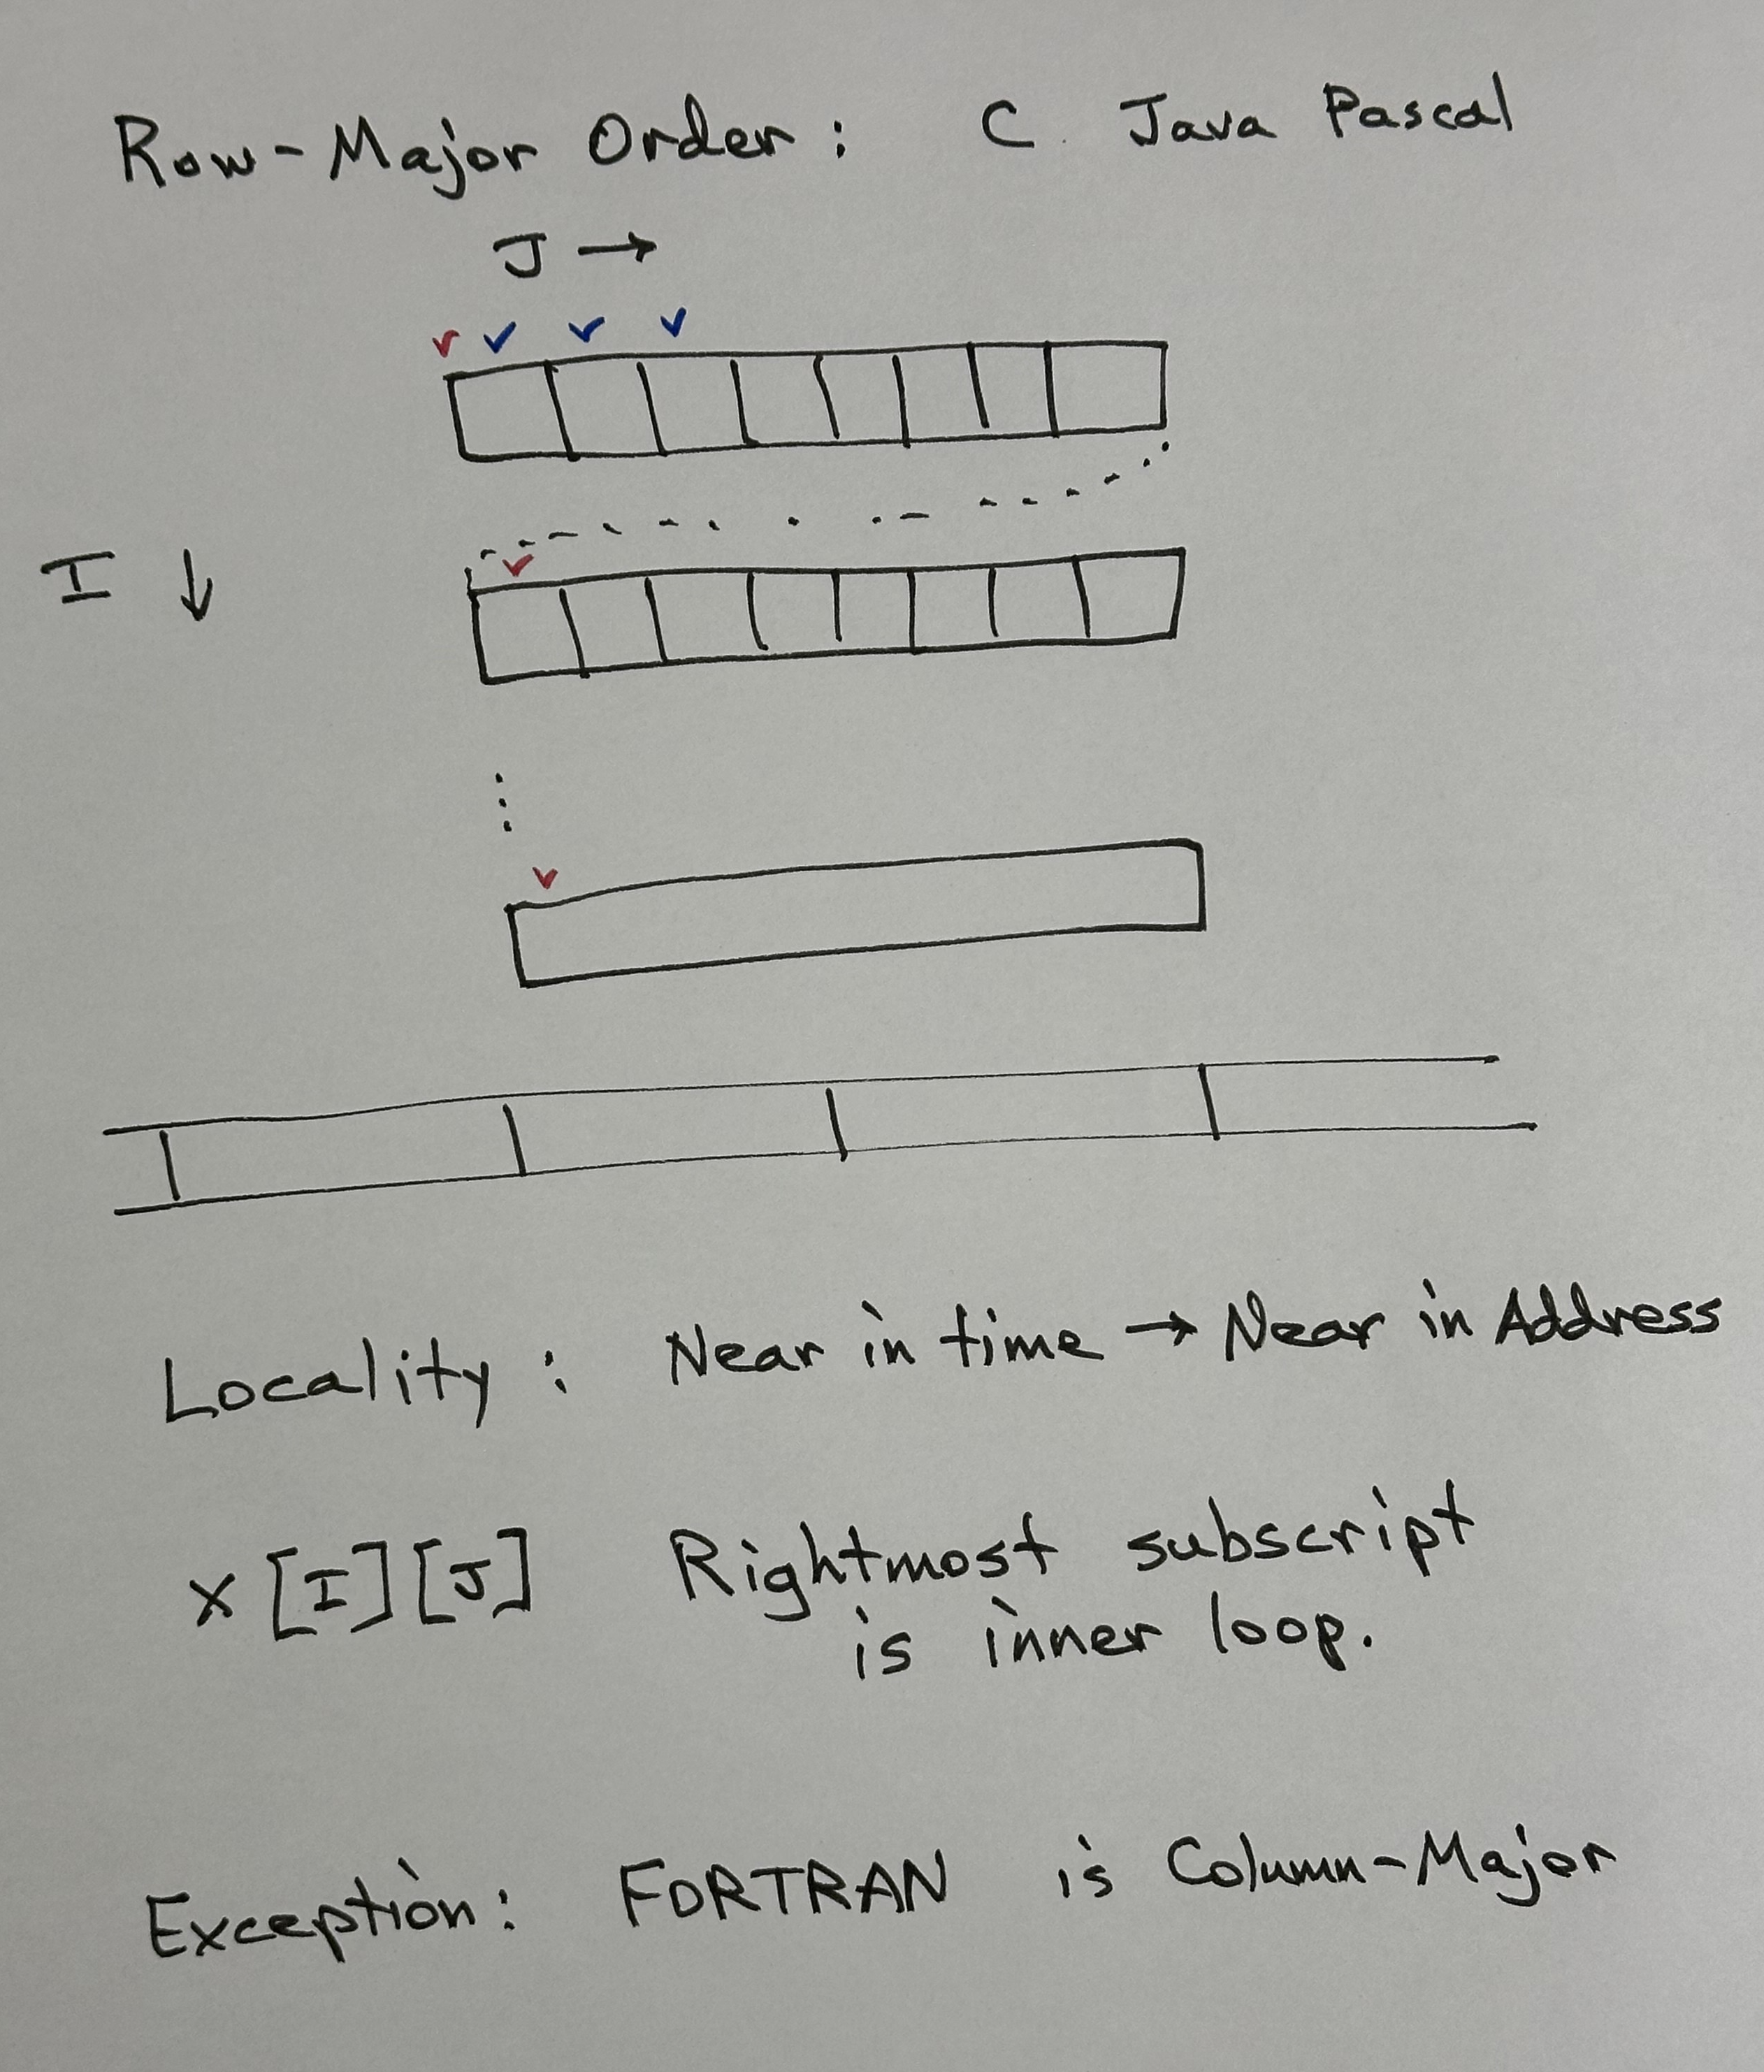 Row-Major Order: C Java Pascal
J →
I ↓
Locality: Near in time → Near in Address
X[I][J] Rightmost subscript
is inner loop.
Exception: FORTRAN is Column-Major